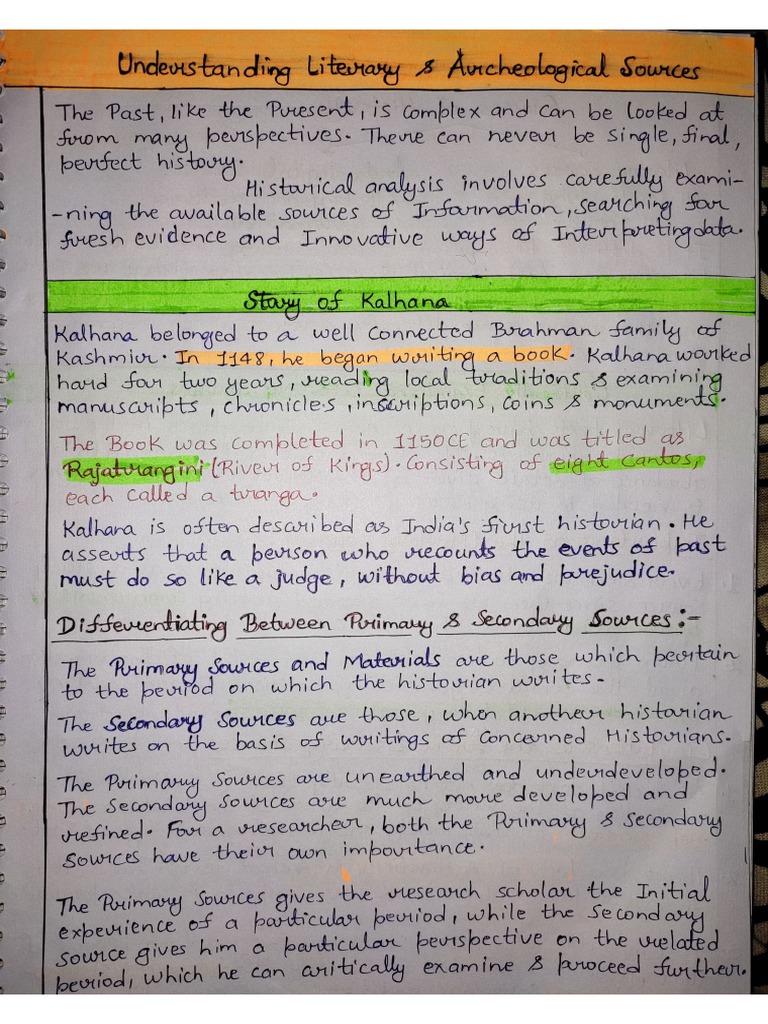 Understanding Literary & Archeological Sources
The Past, like the Present, is complex and can be looked at
from many perspectives. There can never be single, final,
perfect history.
Historical analysis involves carefully exami-
-ning the available sources of Information, searching for
fresh evidence and Innovative ways of Interpreting data.
Story of Kalhana
Kalhana belonged to a well connected Brahman family of
Kashmir. In 1148, he began writing a book. Kalhana worked
hard for two years, reading local traditions & examining
manuscripts, chronicles, inscriptions, coins & monuments.
The Book was completed in 1150CE and was titled as
Rajatrangini (River of Kings). Consisting of eight cantos,
each called a tranga.
Kalhana is often described as India's first historian. He
asserts that a person who recounts the events of past
must do so like a judge, without bias and prejudice.
Differentiating Between Primary & Secondary Sources:-
The Primary Sources and Materials are those which pertain
to the period on which the historian writes.
The Secondary Sources are those, when another historian
writes on the basis of writings of Concerned Historians.
The Primary Sources are unearthed and underdeveloped.
The Secondary Sources are much more developed and
refined. For a researcher, both the Primary & Secondary
Sources have their own importance.
The Primary Sources gives the research scholar the Initial
experience of a particular period, while the Secondary
source gives him a particular perspective on the related
period, which he can critically examine & proceed further.